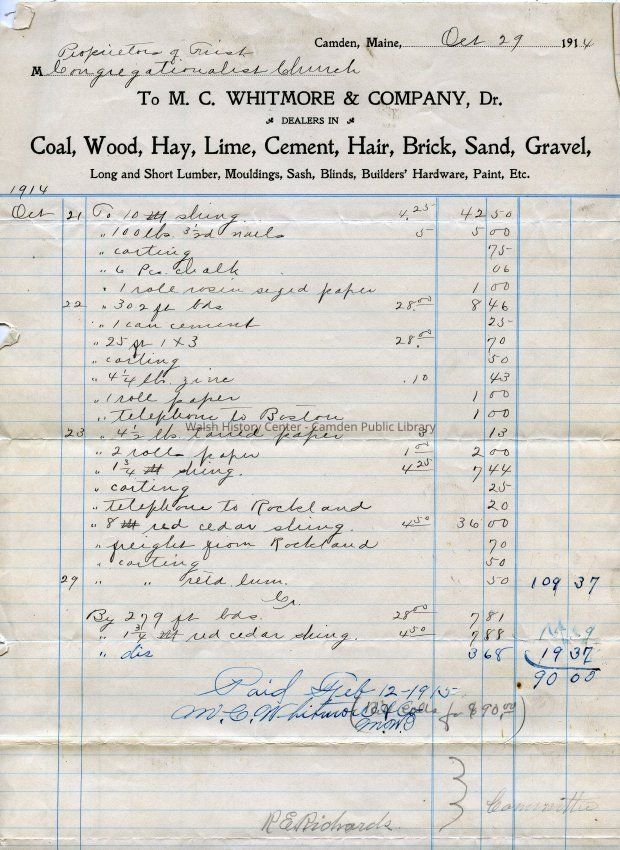 Camden, Maine, Oct 29 1914
Proprietors of Trust
M Congregationalist Church
To M. C. WHITMORE & COMPANY, Dr.
DEALERS IN
Coal, Wood, Hay, Lime, Cement, Hair, Brick, Sand, Gravel,
Long and Short Lumber, Mouldings, Sash, Blinds, Builders' Hardware, Paint, Etc.
1914
Oct 21 To 10 M shing. 4.25 42 50
" 100 lbs 3½d nails 5 5 00
" carting 75
" 6 Pcs. chalk 06
" 1 roll rosin sized paper 1 00
22 " 302 ft bds 28.00 8 46
" 1 can cement 25
" 25 ft 1x3 28.00 70
" carting 50
" 4¼ lb. zinc .10 43
" 1 roll paper 1 00
" telephone to Boston 1 00
Walsh History Center - Camden Public Library
23 " 4½ lb. tarred paper 3 13
" 2 rolls paper 1 00 2 00
" 1¾ M shing. 4 25 7 44
" carting 25
" telephone to Rockland 20
" 8 M red cedar shing. 4 50 36 00
" freight from Rockland 70
" carting 50
29 " " retd. lum. 50 109 37
Cr.
By 279 ft bds. 28 00 7 81
" 1¾ M red cedar shing. 4 50 7 88
" dis 3 68 19 37
90 00
Paid Feb 12-1915
M. C. Whitmore & Co
for $90.00
R E Richards
Committee